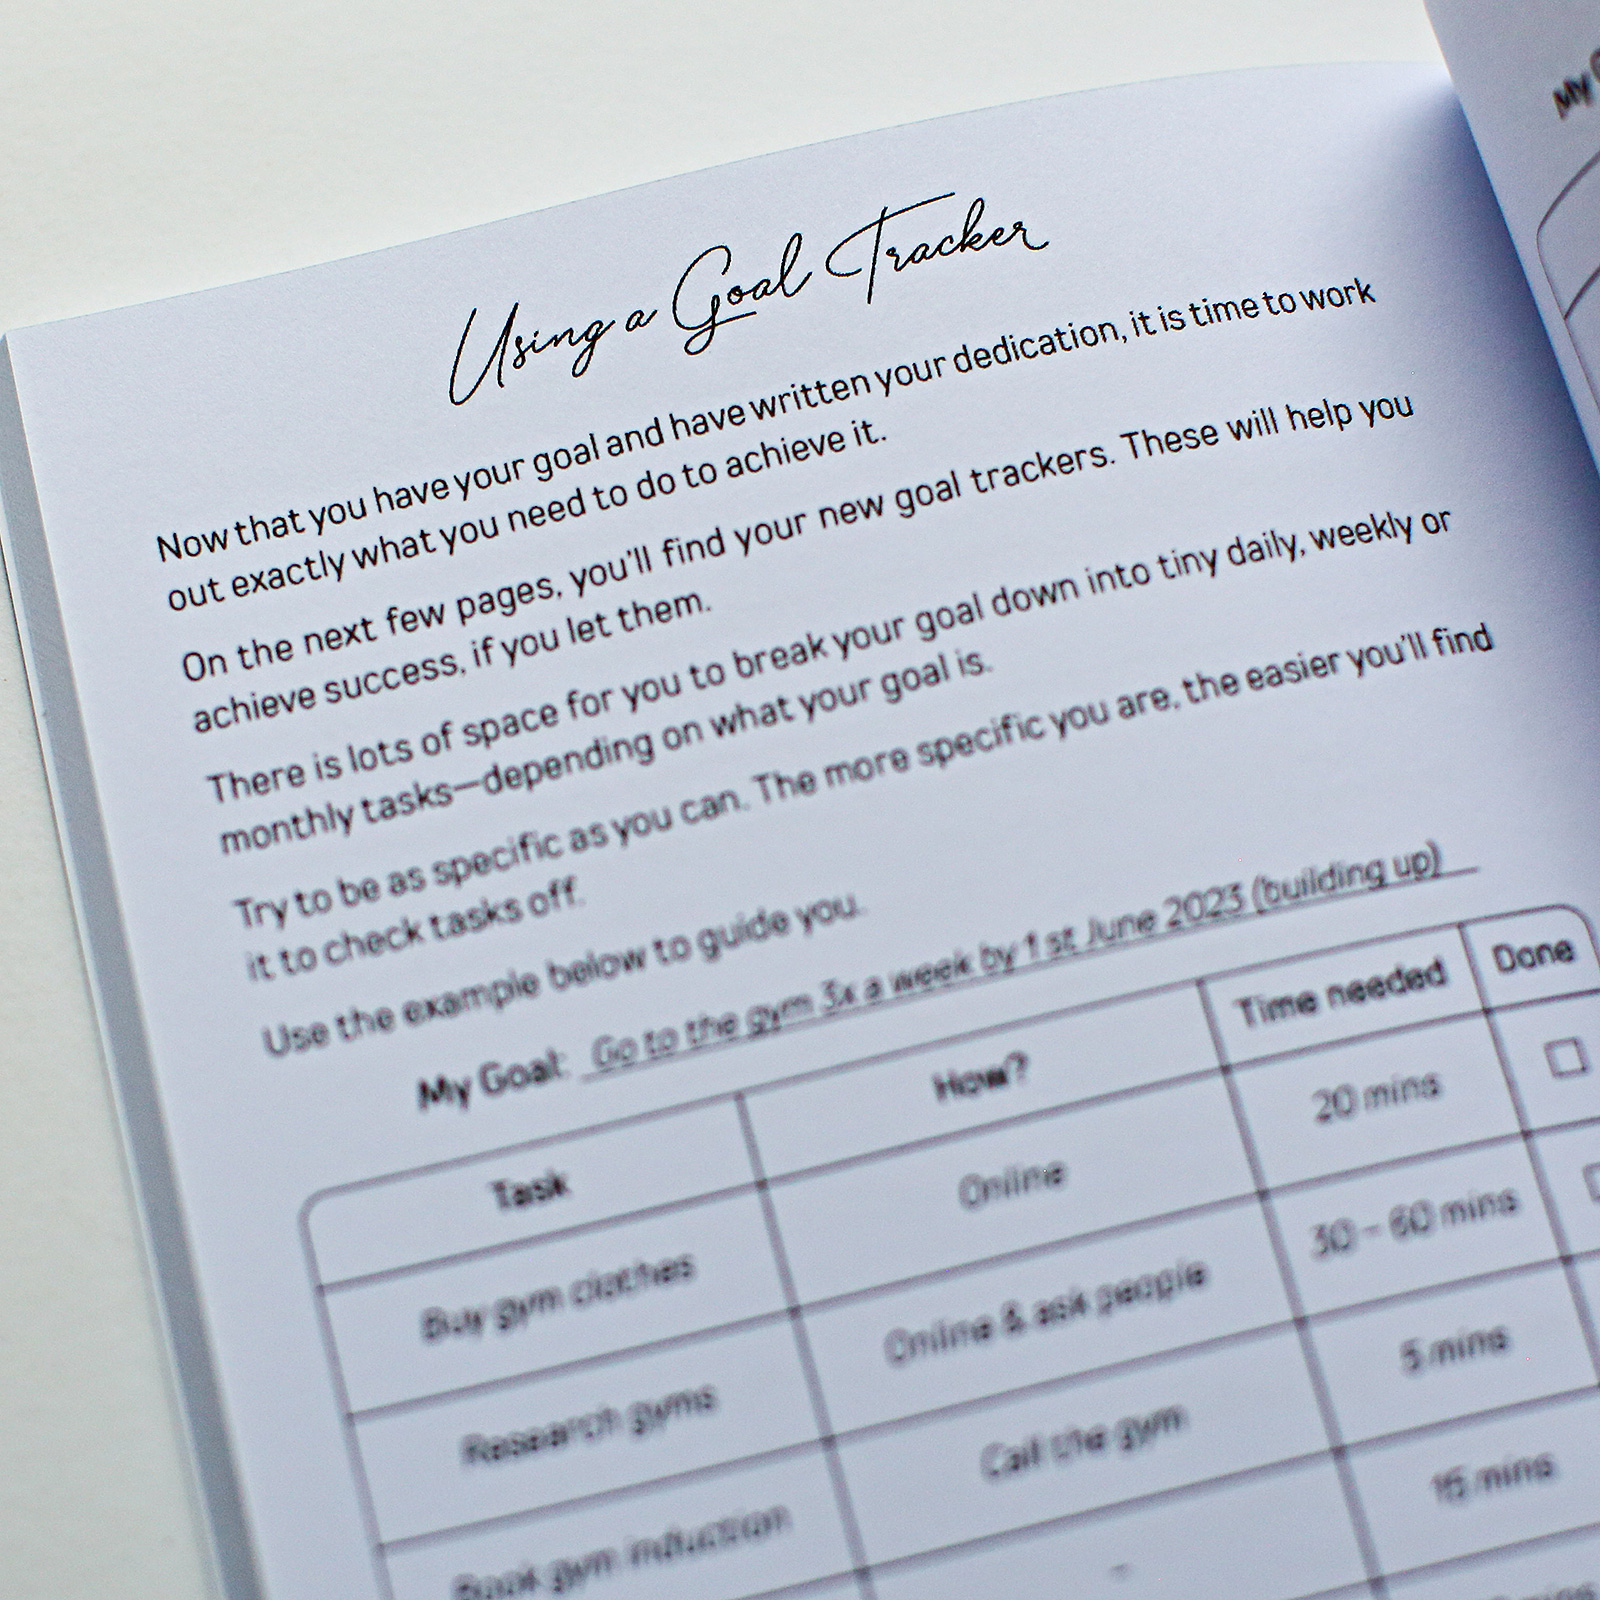 Using a Goal Tracker
Now that you have your goal and have written your dedication, it is time to work
out exactly what you need to do to achieve it.
On the next few pages, you'll find your new goal trackers. These will help you
achieve success, if you let them.
There is lots of space for you to break your goal down into tiny daily, weekly or
monthly tasks—depending on what your goal is.
Try to be as specific as you can. The more specific you are, the easier you'll find
it to check tasks off.
Use the example below to guide you.
My Goal: Go to the gym 3x a week by 1st June 2023 (building up)
Task How? Time needed Done
Buy gym clothes Online 20 mins
Research gyms Online & ask people 30 - 60 mins
Book gym induction Call the gym 5 mins
- 15 mins
mins
My